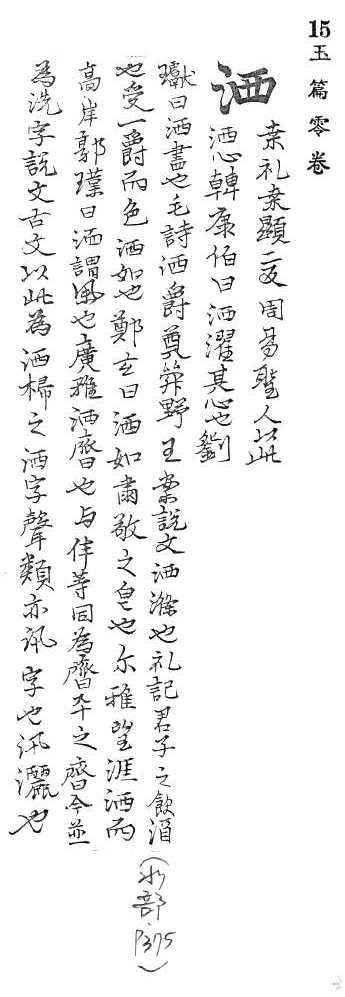 15 玉篇零卷
洒 桒礼桒顯二反周易聖人以此
洒心韓康伯曰洒濯其心也劉
瓛曰洒盡也毛詩洒爵奠斝野王案說文洒滌也礼記君子之飲酒
也受一爵而色洒如也鄭玄曰洒如肅敬之皃也尔雅望涯洒而
高岸郭璞曰洒謂深也廣雅洒齊也与倅等同為齊平之齊今並
為洗字說文古文以此為洒埽之洒字聲類亦汛字也汛灑也
(水部 P375)